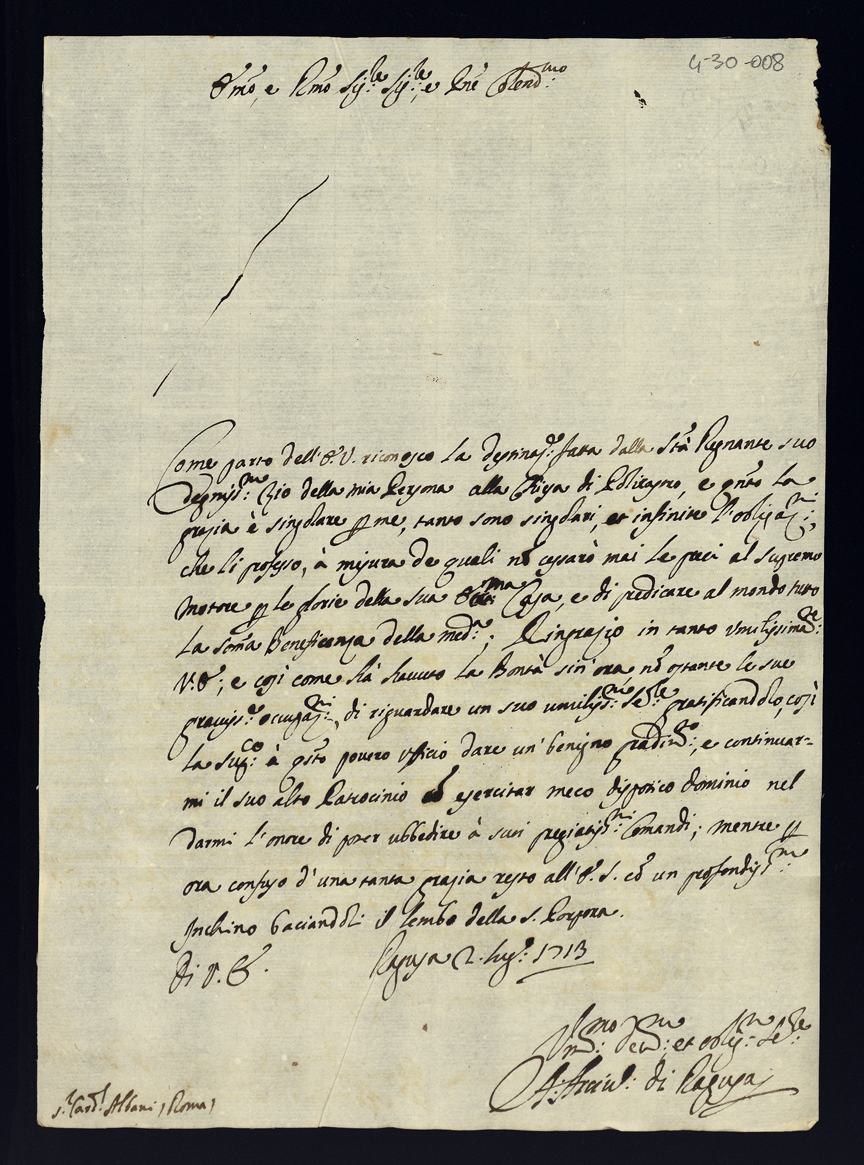 4-30-008
E.mo, e R.mo Sig.re Sig.re, e P.ne Colend.mo
Come parto dell'E.V. riconosco la destinaz.ne fatta dalla S.tà Regnante suo
degniss.mo Zio della mia Persona alla Chiesa di Policastro, e q.nto la
grazia è singolare p me, tanto sono singolari, et infinite l'obligaz.ni,
che li professo, à misura de quali nõ cessarò mai le preci al supremo
Motore p le glorie della sua Ecc.ma Casa, e di predicare al mondo tutto
la som̃a Beneficenza della med.ma; Ringrazio in tanto umilissimam.te
V.E.; e così come hà havuto la Bontà sin'ora, nõ ostante le sue
graviss.me occupaz.ni, di riguardare un suo umiliss.mo Se.re gratificandolo, così
la sup.co à q.sto povero ufficio dare un' benigno gradim.to, e continuar=
mi il suo alto Patrocinio ed esercitar meco dispotico dominio nel
darmi l'onore di poter ubbedire à suoi pregiatiss.mi Comandi; mentre p
ora confuso d'una tanta grazia resto all'E.S. cõ un profondiss.mo
Inchino baciandoli il lembo della S. Porpora.
Di V.E. Ragusa 2. lug.o 1713
Um.mo dev.mo et oblig.mo Se.re
A: Arciv.o di Ragusa
S.r Card.l Albani, Roma,